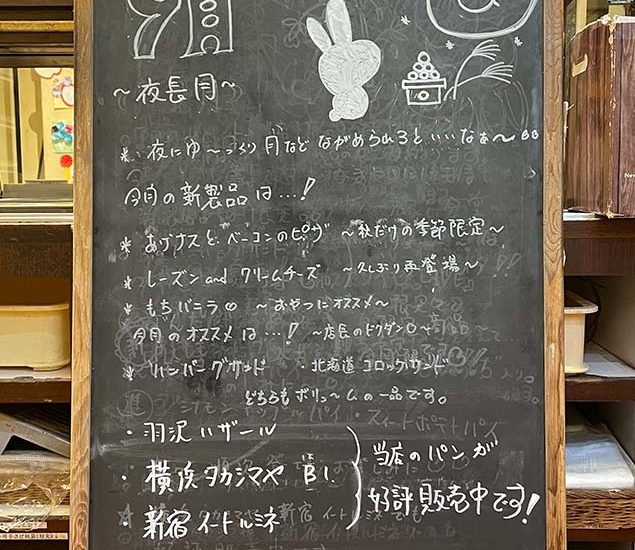 9月
～夜長月～
＊ 夜にゆ〜っくり月などながめられるといいなぁ〜
今月の新製品は…!
＊ あげナスとベーコンのピザ 〜秋だけの季節限定〜
＊ レーズンandクリームチーズ 〜久しぶり再登場〜
＊ もちバニラ 〜おやつにオススメ〜
今月のオススメは…! 〜店長のドクダン〜
＊ ハンバーグサンド ・北海道コロッケサンド
どちらもボリュームの一品です。
・羽沢ハザール
・横浜タカシマヤ B1
・新宿イートルミネ
当店のパンが
好評販売中です!